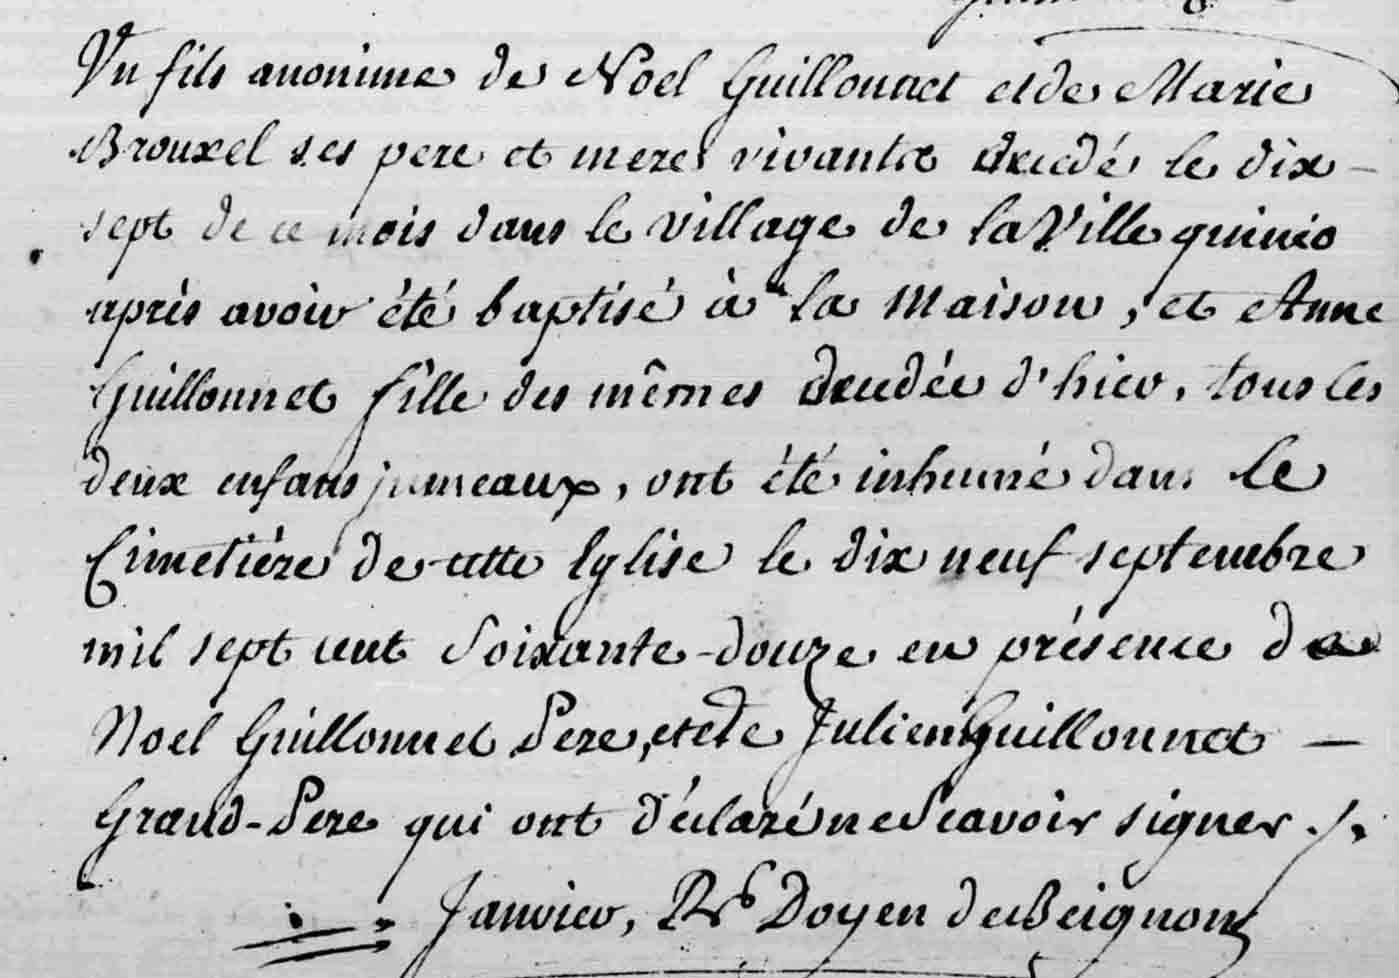 Un fils anonime de Noel Guillonnet et de Marie
Brouxel ses pere et mere vivants decedé le dix-
sept de ce mois dans le village de la Ville quinio
après avoir été baptisé à la maison, et Anne
Guillonnet fille des mêmes decedée d'hier, tous les
deux enfans jumeaux, ont été inhumé dans le
Cimetière de cette Eglise le dix neuf septembre
mil sept cent Soixante-douze en présence de
Noel Guillonnet Pere, et de Julien Guillonnet —
Grand-Pere qui ont déclaré ne Scavoir signer ./.
Janvier, Rr Doyen de Beignon